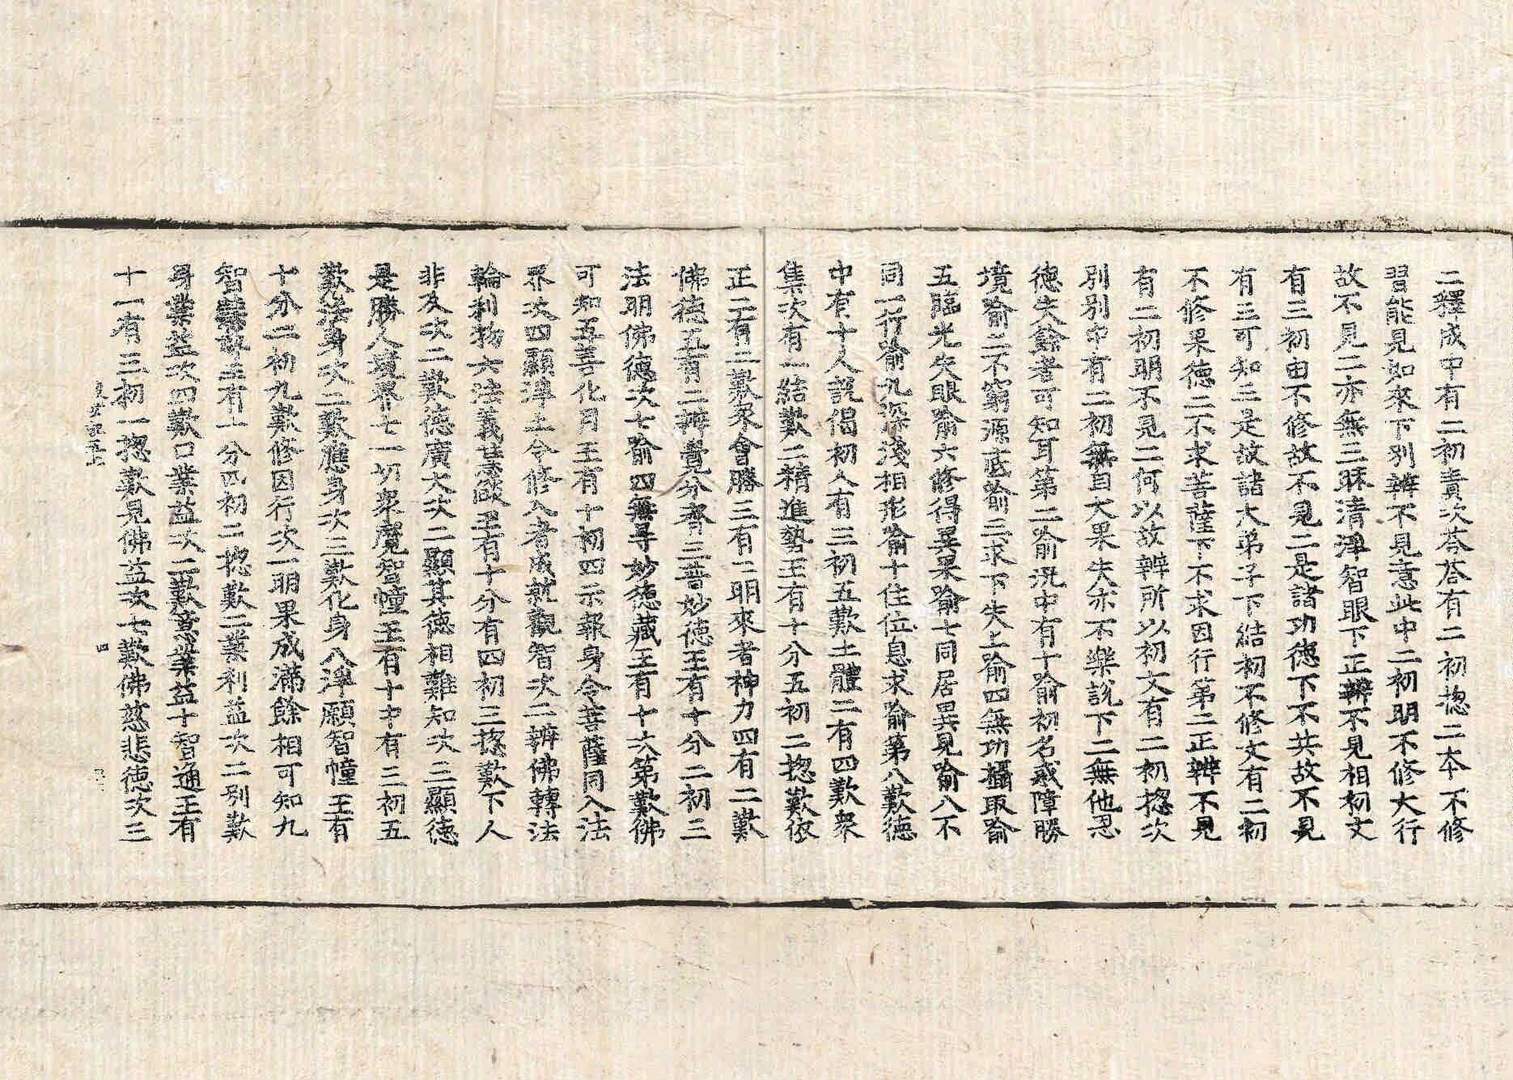 二釋成中有二初責次荅荅有二初揔二本不修
習能見如來下別辨不見意此中二初明不修大行
故不見二亦無三昧清淨智眼下正辨不見相初文
有三初由不修故不見二是諸功德下不共故不見
有三可知三是故諸大弟子下結初不修文有二初
不修果德二不求菩薩下不求因行第二正辨不見
有二初明不見二何以故辨所以初文有二初揔次
別別中有二初無自大果失亦不樂說下二無他忍
德失餘者可知耳第二喻況中有十喻初名惑障勝
境喻二不窮源底喻三求下失上喻四無功攝取喻
五臨光失眼喻六修得異果喻七同居異見喻八不
同一行喻九深淺相形喻十住位息求喻第八歎德
中有十人說偈初人有三初五歎土體二有四歎衆
集次有一結歎二精進勢王有十分五初二揔歎依
正二有二歎衆會勝三有二明來者神力四有二歎
佛德五有二辨覺分齊三普妙德王有十分二初三
法明佛德次七喻四無㝵妙德藏王有十六第歎佛
可知五善化月王有十初四示報身令菩薩同入法
界次四顯淨土令修入者成就觀智次二辨佛轉法
輪利物六法義慧王有十分有四初三揔歎下人
非及次二歎德廣大次二顯其德相難知次三顯德
是勝人境界七一切衆魔智幢王有十中有三初五
歎法身次二歎應身次三歎化身八淨願智幢王有
十分二初九歎修因行次一明果成滿餘相可知九
智王有十分四初二揔歎二業利益次二別歎
身業益次四歎口業益次二歎意業益十智通王有
十一有三初一揔歎見佛益次七歎佛慈悲德次三
四